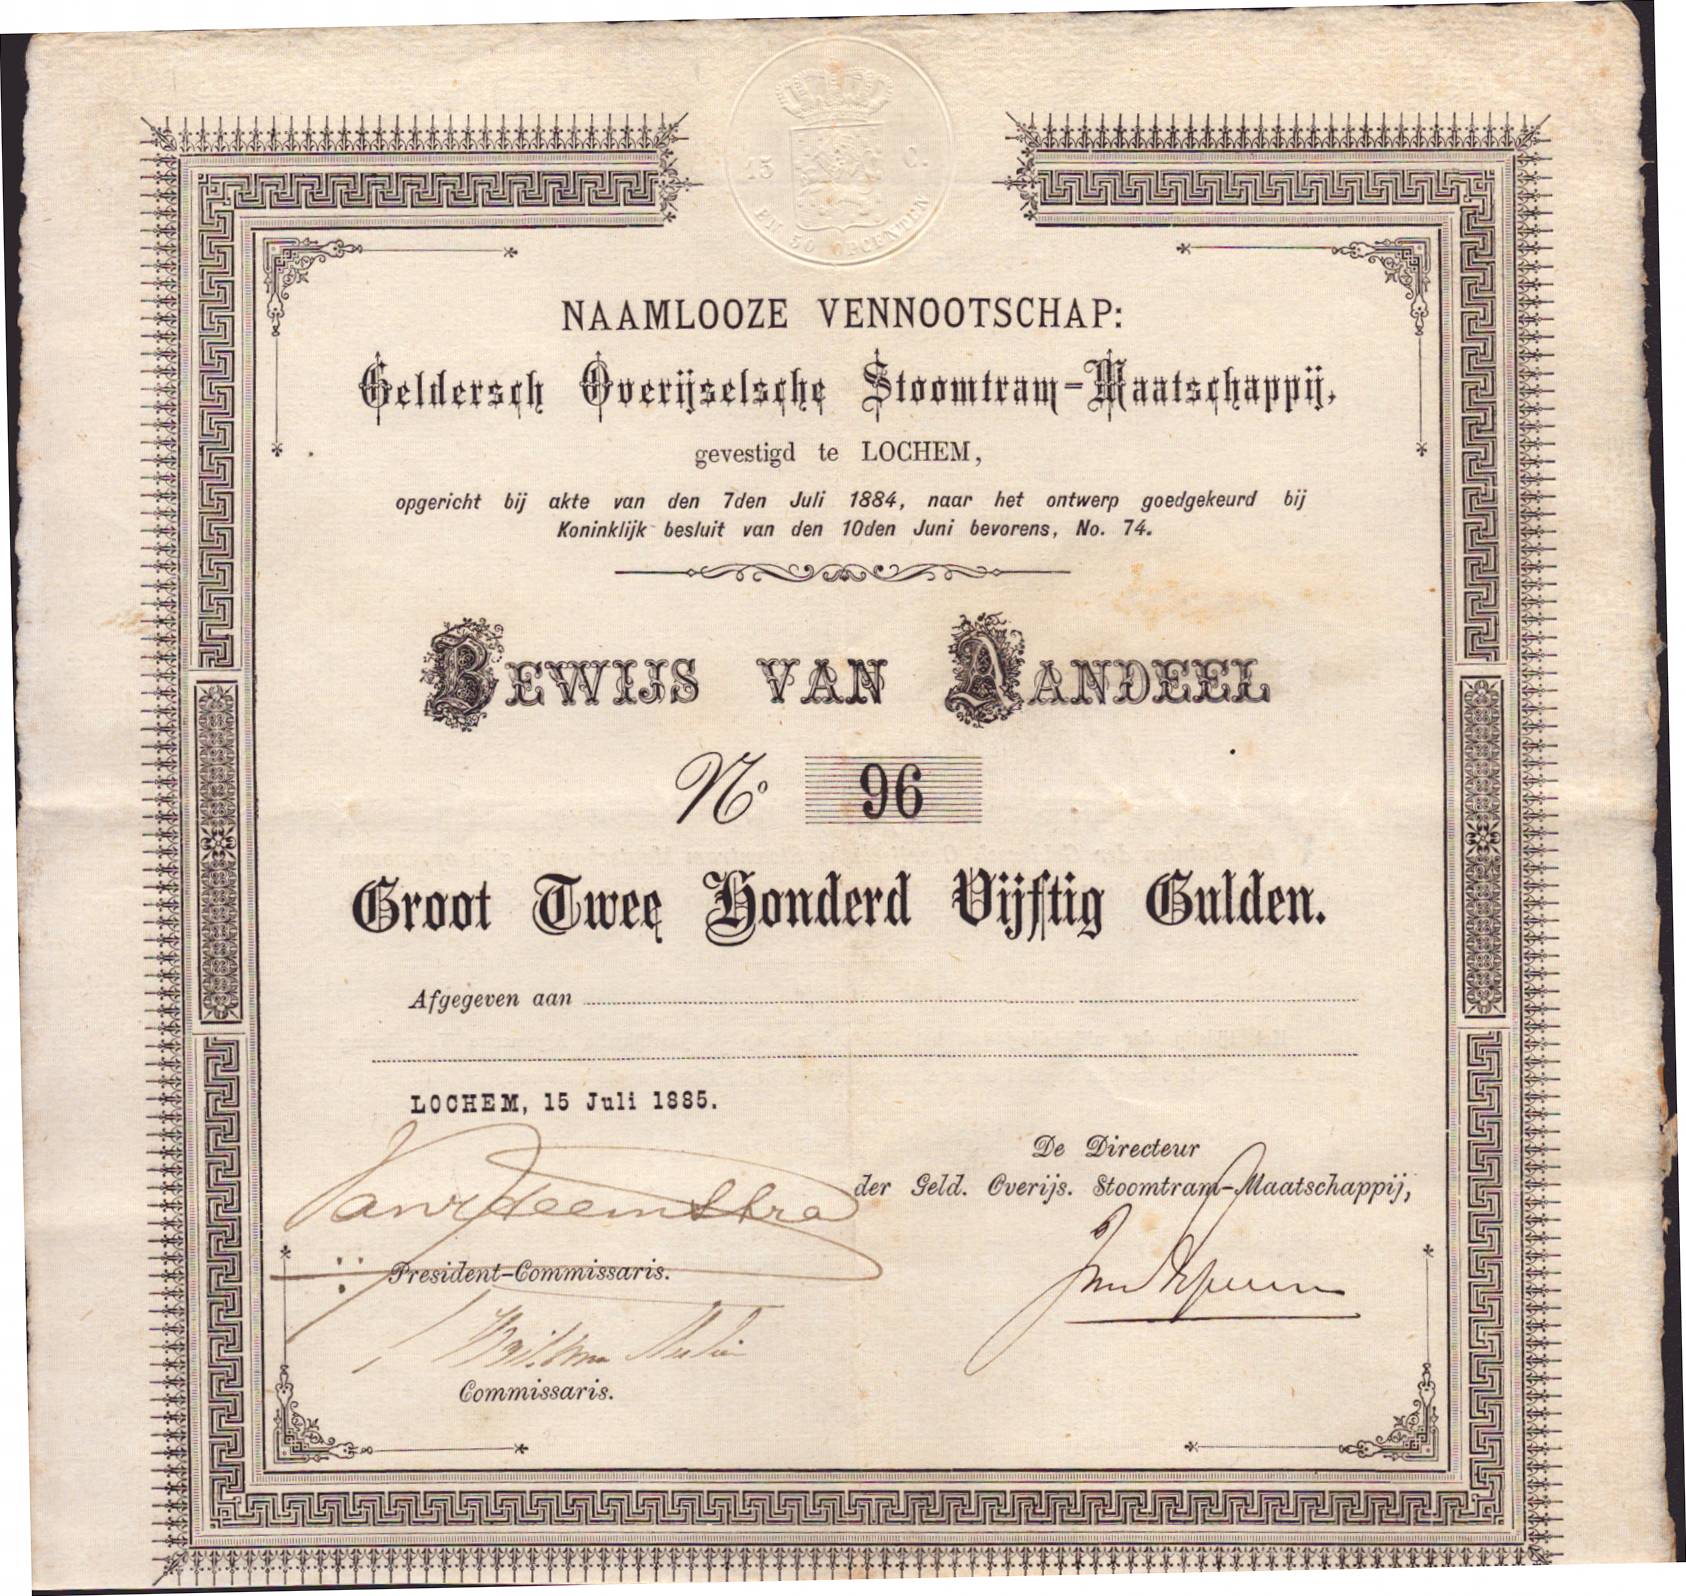 15 C.
EN 50 OPCENTEN
NAAMLOOZE VENNOOTSCHAP:
Geldersch Overijselsche Stoomtram-Maatschappij,
gevestigd te LOCHEM,
opgericht bij akte van den 7den Juli 1884, naar het ontwerp goedgekeurd bij
Koninklijk besluit van den 10den Juni bevorens, No. 74.
BEWIJS VAN AANDEEL
No. 96
Groot Twee Honderd Vijftig Gulden.
Afgegeven aan
LOCHEM, 15 Juli 1885.
De Directeur
der Geld. Overijs. Stoomtram-Maatschappij,
President-Commissaris.
Commissaris.